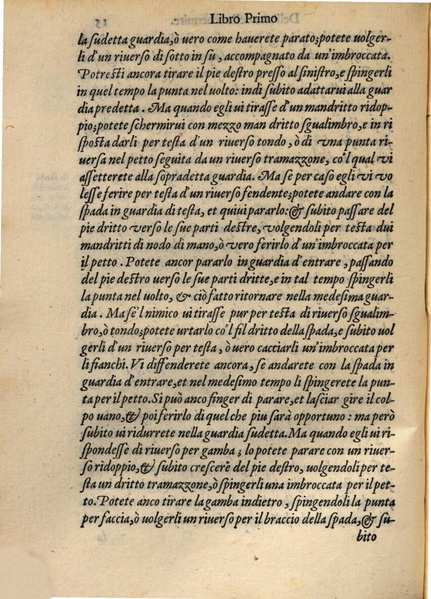 Libro Primo
la sudetta guardia, ò vero come hauerete parato; potete volger-
li d'un riuerso di sotto in sù, accompagnato da un'imbroccata.
Potresti ancora tirare il pie destro presso al sinistro, e spingerli
in quel tempo la punta nel volto: indi subito adattarui alla guar
dia predetta. Ma quando egli ui tirasse d'un mandritto ridop-
pio; potete schermirui con mezzo man dritto sgualimbro, e in ri
sposta darli per testa d'un riuerso tondo, ò di vna punta ri-
uersa nel petto seguita da un riuerso tramazzone, co'l qual vi
assetterete alla sopradetta guardia. Ma se per caso egli vi vo
lesse ferire per testa d'un riuerso fendente; potete andare con la
spada in guardia di testa, et quiui pararlo: & subito passare del
pie dritto verso le sue parti destre, volgendoli per testa dui
mandritti di nodo di mano, ò vero ferirlo d'un'imbroccata per
il petto. Potete ancor pararlo in guardia d'entrare, passando
del pie destro verso le sue parti dritte, e in tal tempo spingerli
la punta nel volto, & ciò fatto ritornare nella medesima guar-
dia. Ma se'l nimico ui tirasse pur per testa di riuerso sgualim-
bro, ò tondo; potete urtarlo co'l fil dritto della spada, e subito vol
gerli d'un riuerso per testa, ò uero cacciarli un'imbroccata per
li fianchi. Vi diffenderete ancora, se andarete con la spada in
guardia d'entrare, et nel medesimo tempo li spingerete la pun-
ta per il petto. Si può anco finger di parare, et lasciar gire il col
po uano, & poi ferirlo di quel che piu sarà opportuno: ma però
subito ui ridurrete nella guardia sudetta. Ma quando egli ui ri-
spondesse di riuerso per gamba; lo potete parare con un riuer-
so ridoppio, & subito crescere del pie destro, volgendoli per te-
sta un dritto tramazzone, ò spingerli una imbroccata per il pet-
to. Potete anco tirare la gamba indietro, spingendoli la punta
per faccia, ò volgerli un riuerso per il braccio della spada, & su-
bito